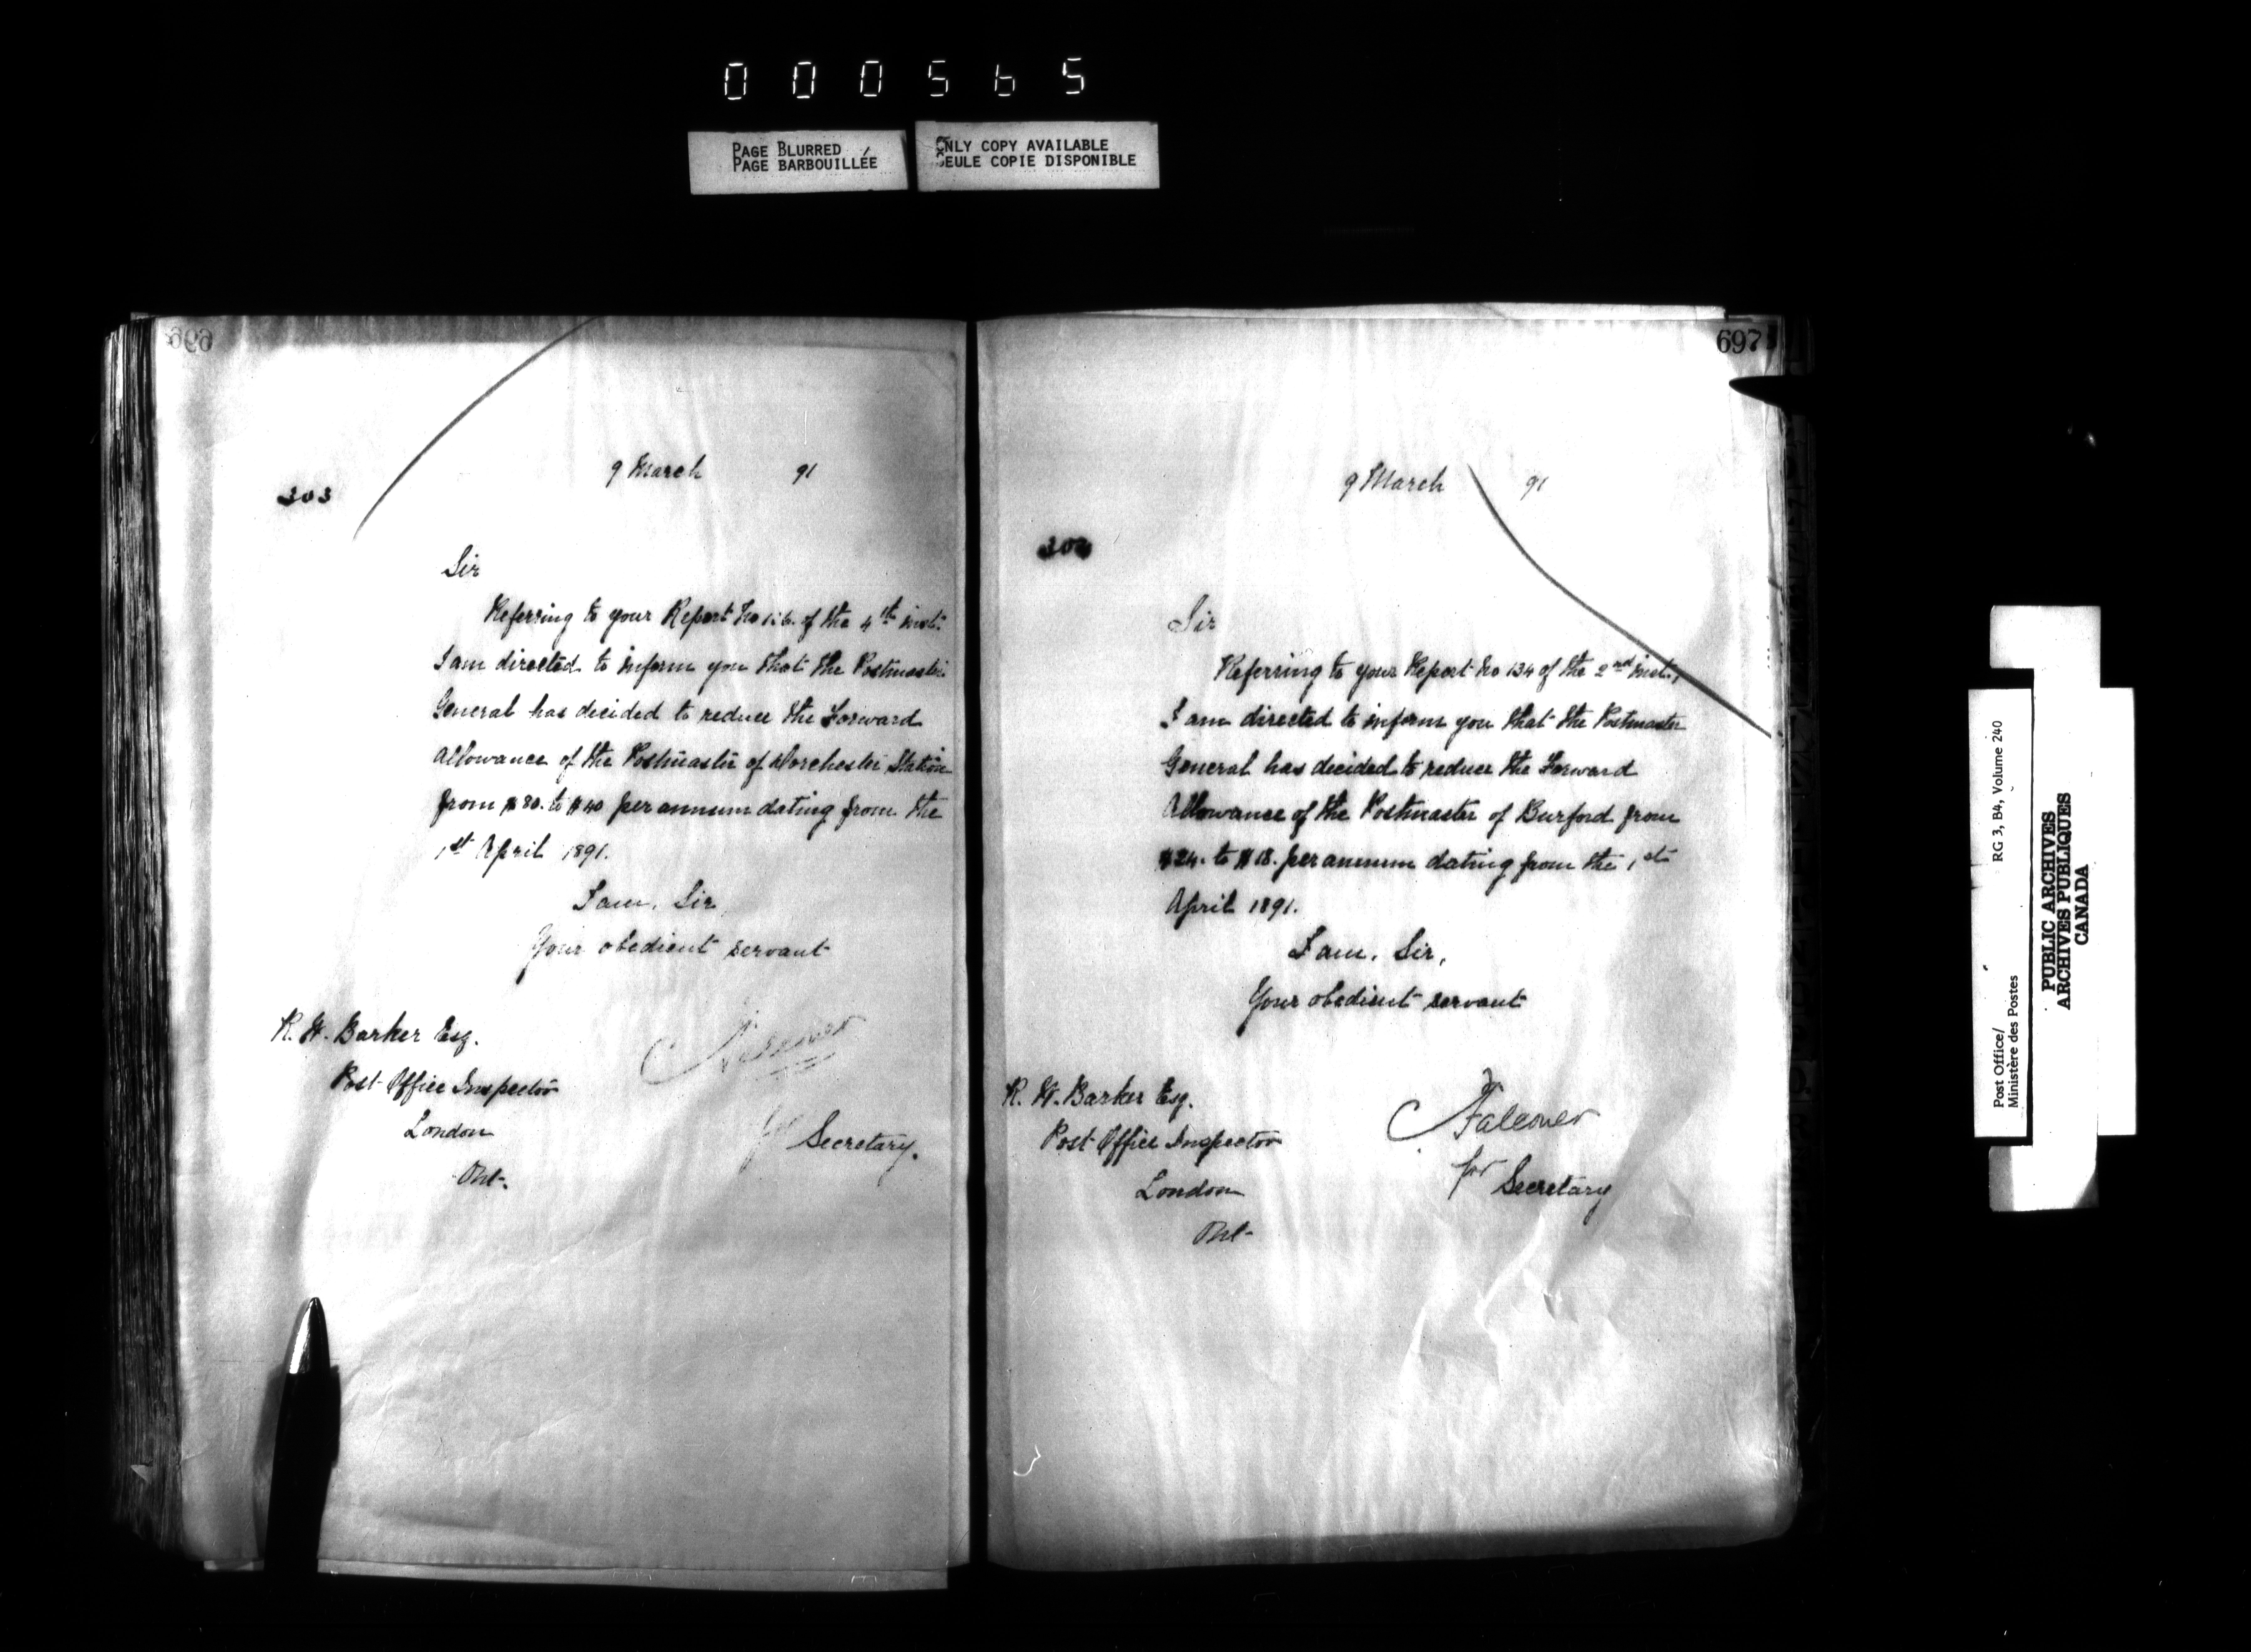 000565
PAGE BLURRED
PAGE BARBOUILLÉE
ONLY COPY AVAILABLE
SEULE COPIE DISPONIBLE
696
9 March 91
303
Sir
Referring to your Report No of the 4th inst.
I am directed to inform you that the Postmaster
General has decided to reduce the Forward
Allowance of the Postmaster of Dorchester Station
from $80. to $40 per annum dating from the
1st April 1891.
I am, Sir
Your obedient servant
R. W. Barker Esq.
Post Office Inspector
London
Ont.
Falconer
for Secretary.
697
9 March 91
Sir
Referring to your Report No 134 of the 2nd inst.,
I am directed to inform you that the Postmaster
General has decided to reduce the Forward
Allowance of the Postmaster of Burford from
$24. to $18. per annum dating from the 1st
April 1891.
I am, Sir,
Your obedient servant
R. W. Barker Esq.
Post Office Inspector
London
Ont
Falconer
for Secretary
Post Office/
Ministère des Postes
RG 3, B4, Volume 240
PUBLIC ARCHIVES
ARCHIVES PUBLIQUES
CANADA